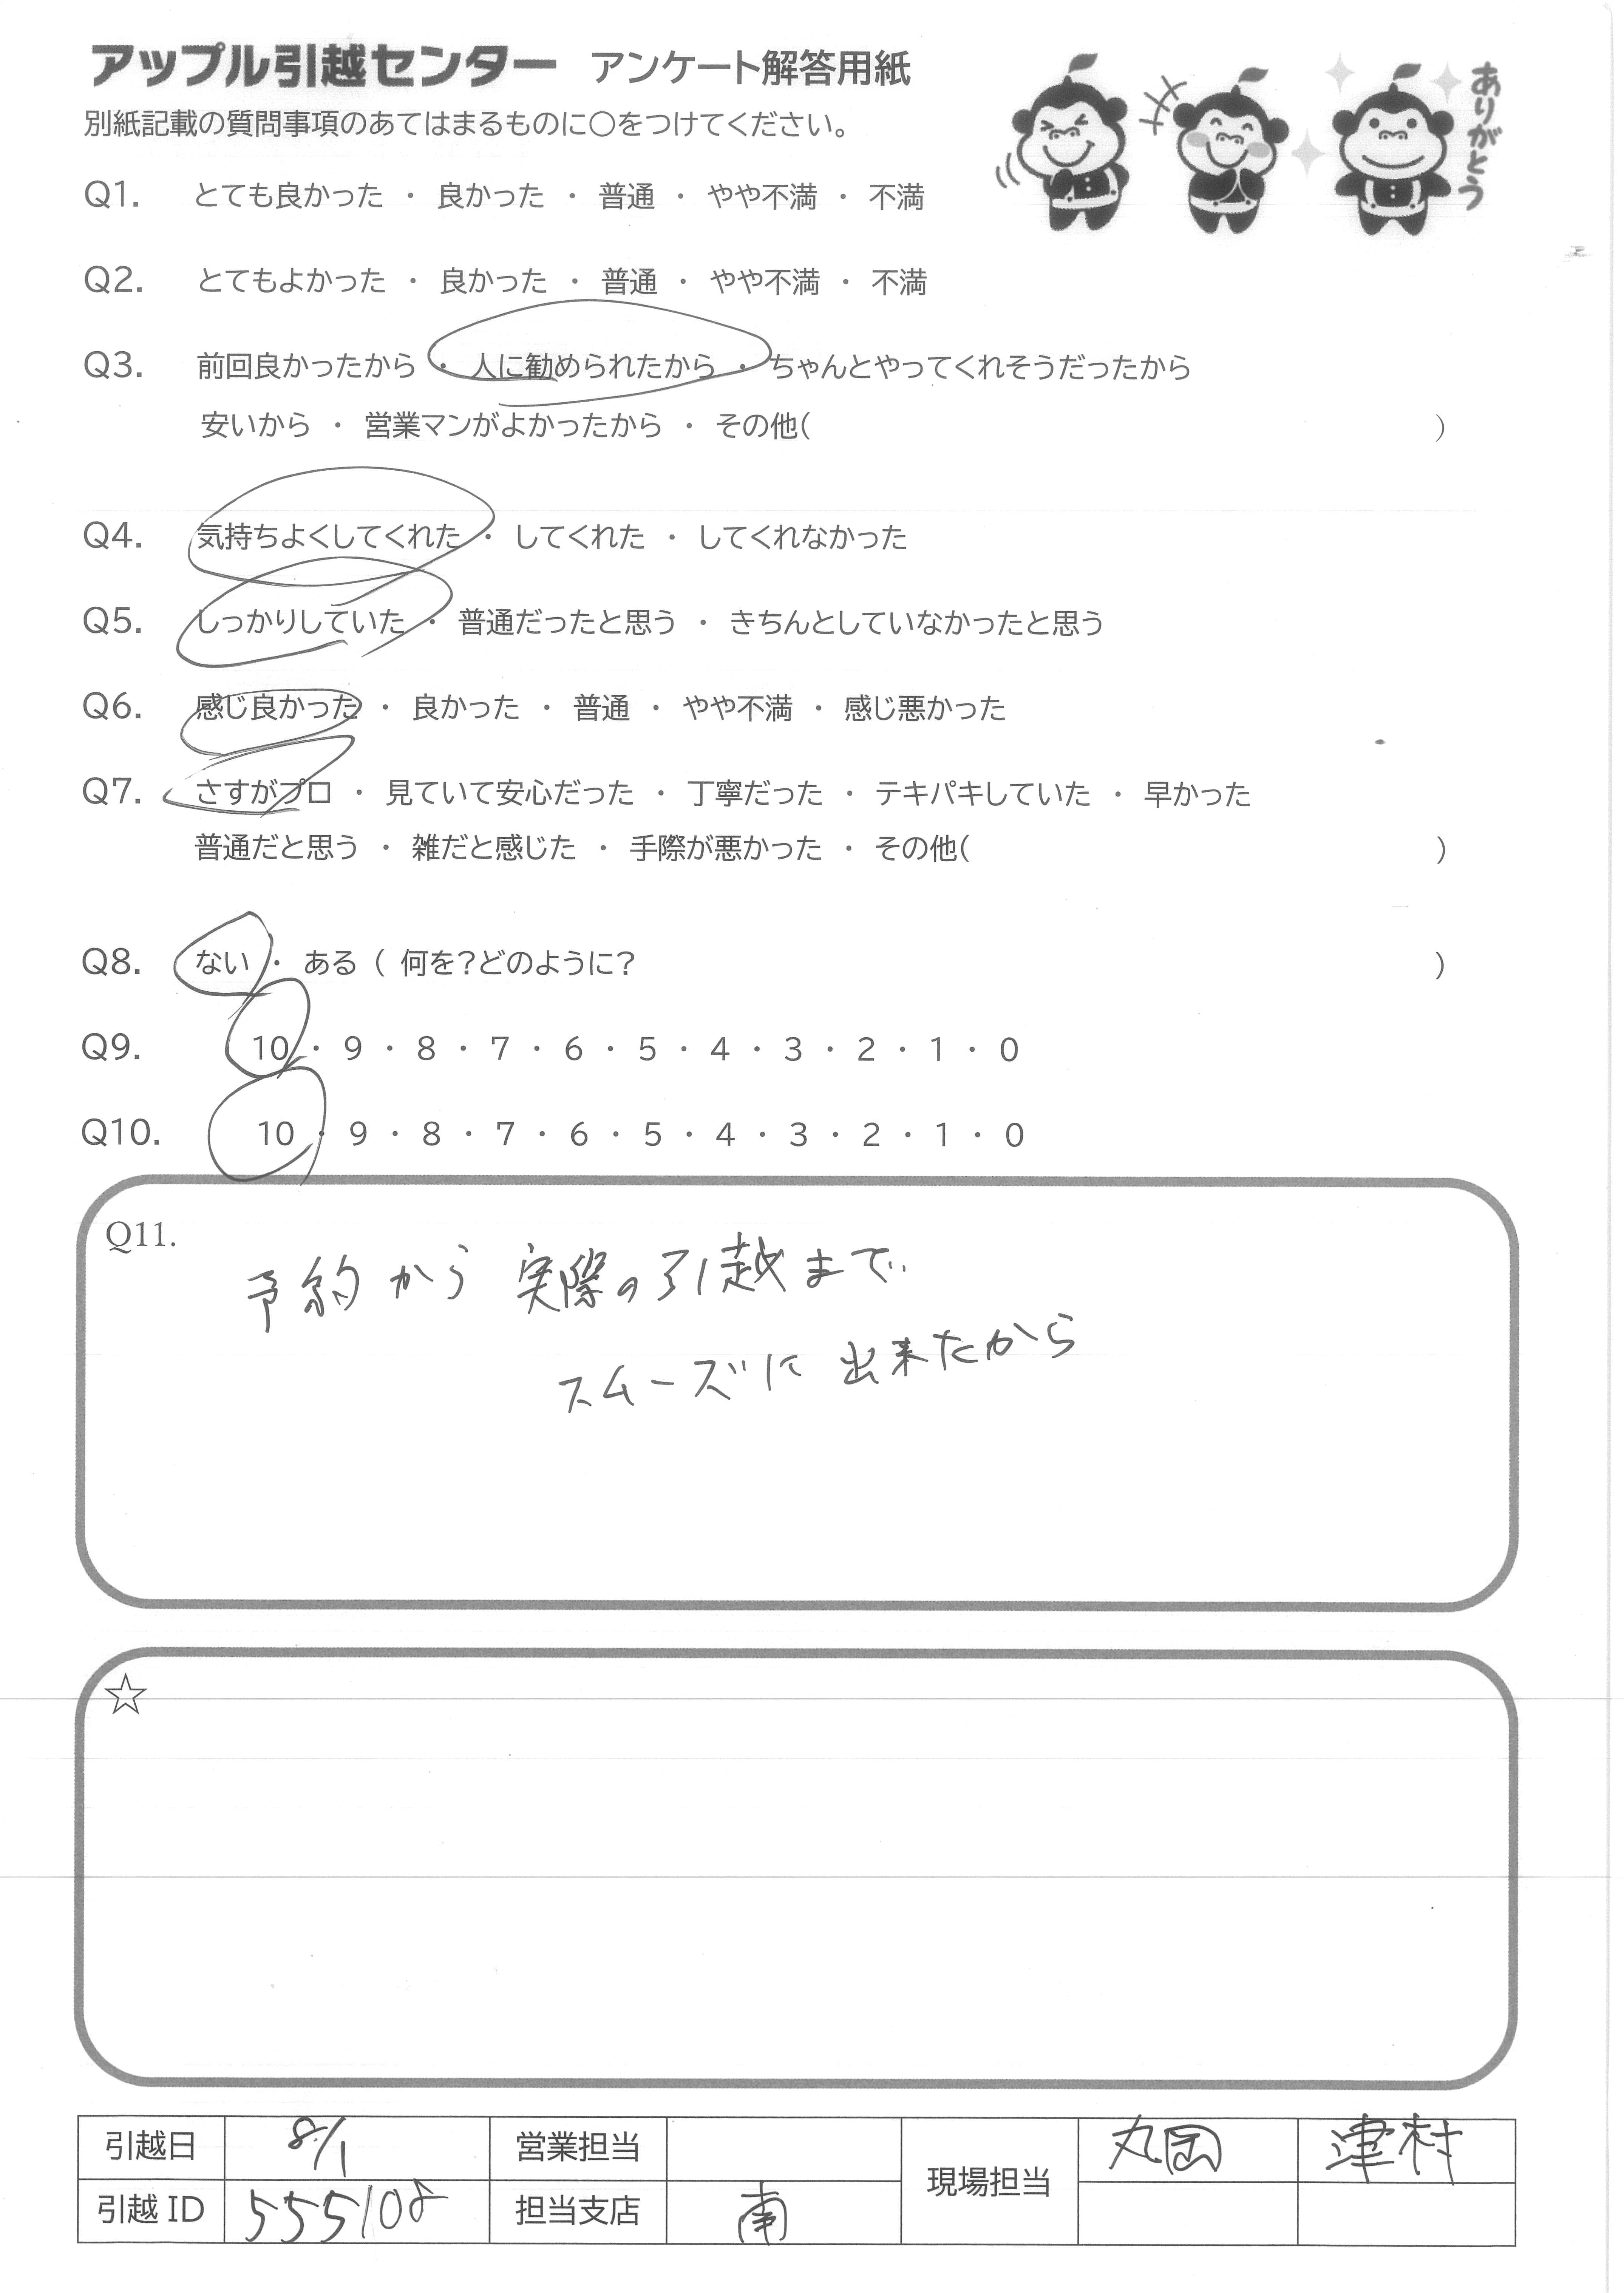 アップル引越センター アンケート解答用紙
別紙記載の質問事項のあてはまるものに○をつけてください。
ありがとう
Q1. とても良かった ・ 良かった ・ 普通 ・ やや不満 ・ 不満
Q2. とてもよかった ・ 良かった ・ 普通 ・ やや不満 ・ 不満
Q3. 前回良かったから ・ 人に勧められたから ・ ちゃんとやってくれそうだったから
安いから ・ 営業マンがよかったから ・ その他( )
Q4. 気持ちよくしてくれた ・ してくれた ・ してくれなかった
Q5. しっかりしていた ・ 普通だったと思う ・ きちんとしていなかったと思う
Q6. 感じ良かった ・ 良かった ・ 普通 ・ やや不満 ・ 感じ悪かった
Q7. さすがプロ ・ 見ていて安心だった ・ 丁寧だった ・ テキパキしていた ・ 早かった
普通だと思う ・ 雑だと感じた ・ 手際が悪かった ・ その他( )
Q8. ない ・ ある ( 何を?どのように? )
Q9. 10 ・ 9 ・ 8 ・ 7 ・ 6 ・ 5 ・ 4 ・ 3 ・ 2 ・ 1 ・ 0
Q10. 10 ・ 9 ・ 8 ・ 7 ・ 6 ・ 5 ・ 4 ・ 3 ・ 2 ・ 1 ・ 0
Q11.
予約から実際の引越まで
スムーズに出来たから
☆
引越日 8/1 営業担当 現場担当 丸岡 津村
引越ID 555108 担当支店 南